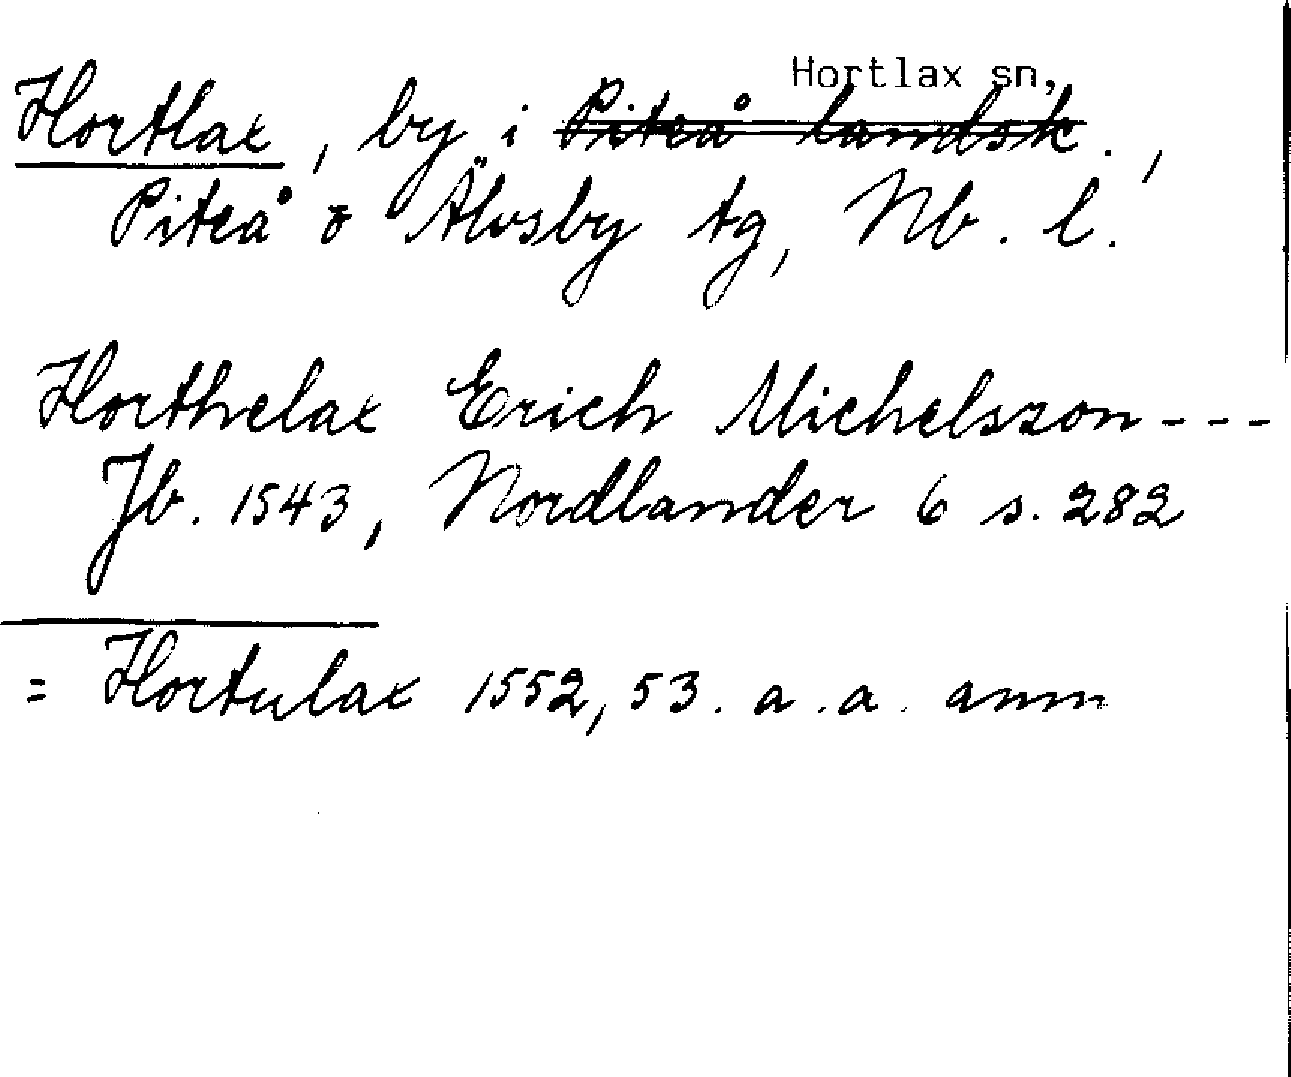 Hortlax sn,
Hortlax, by i Piteå landsk.,
Piteå o Älvsby tg, Nb. l.
Horthelax Erich Michelsson ---
Jb. 1543, Nordlander 6 s. 282
= Hortulax 1552, 53. a. a. anm